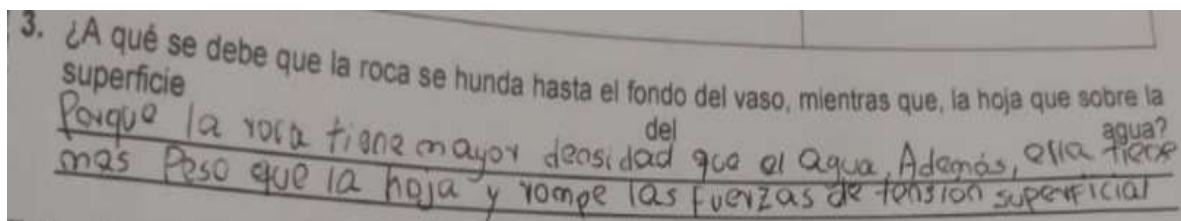 3. ¿A qué se debe que la roca se hunda hasta el fondo del vaso, mientras que, la hoja que sobre la
superficie del agua?
Porque la roca tiene mayor densidad que el agua, Además, ella tiene
mas Peso que la hoja y rompe las fuerzas de tension superficial